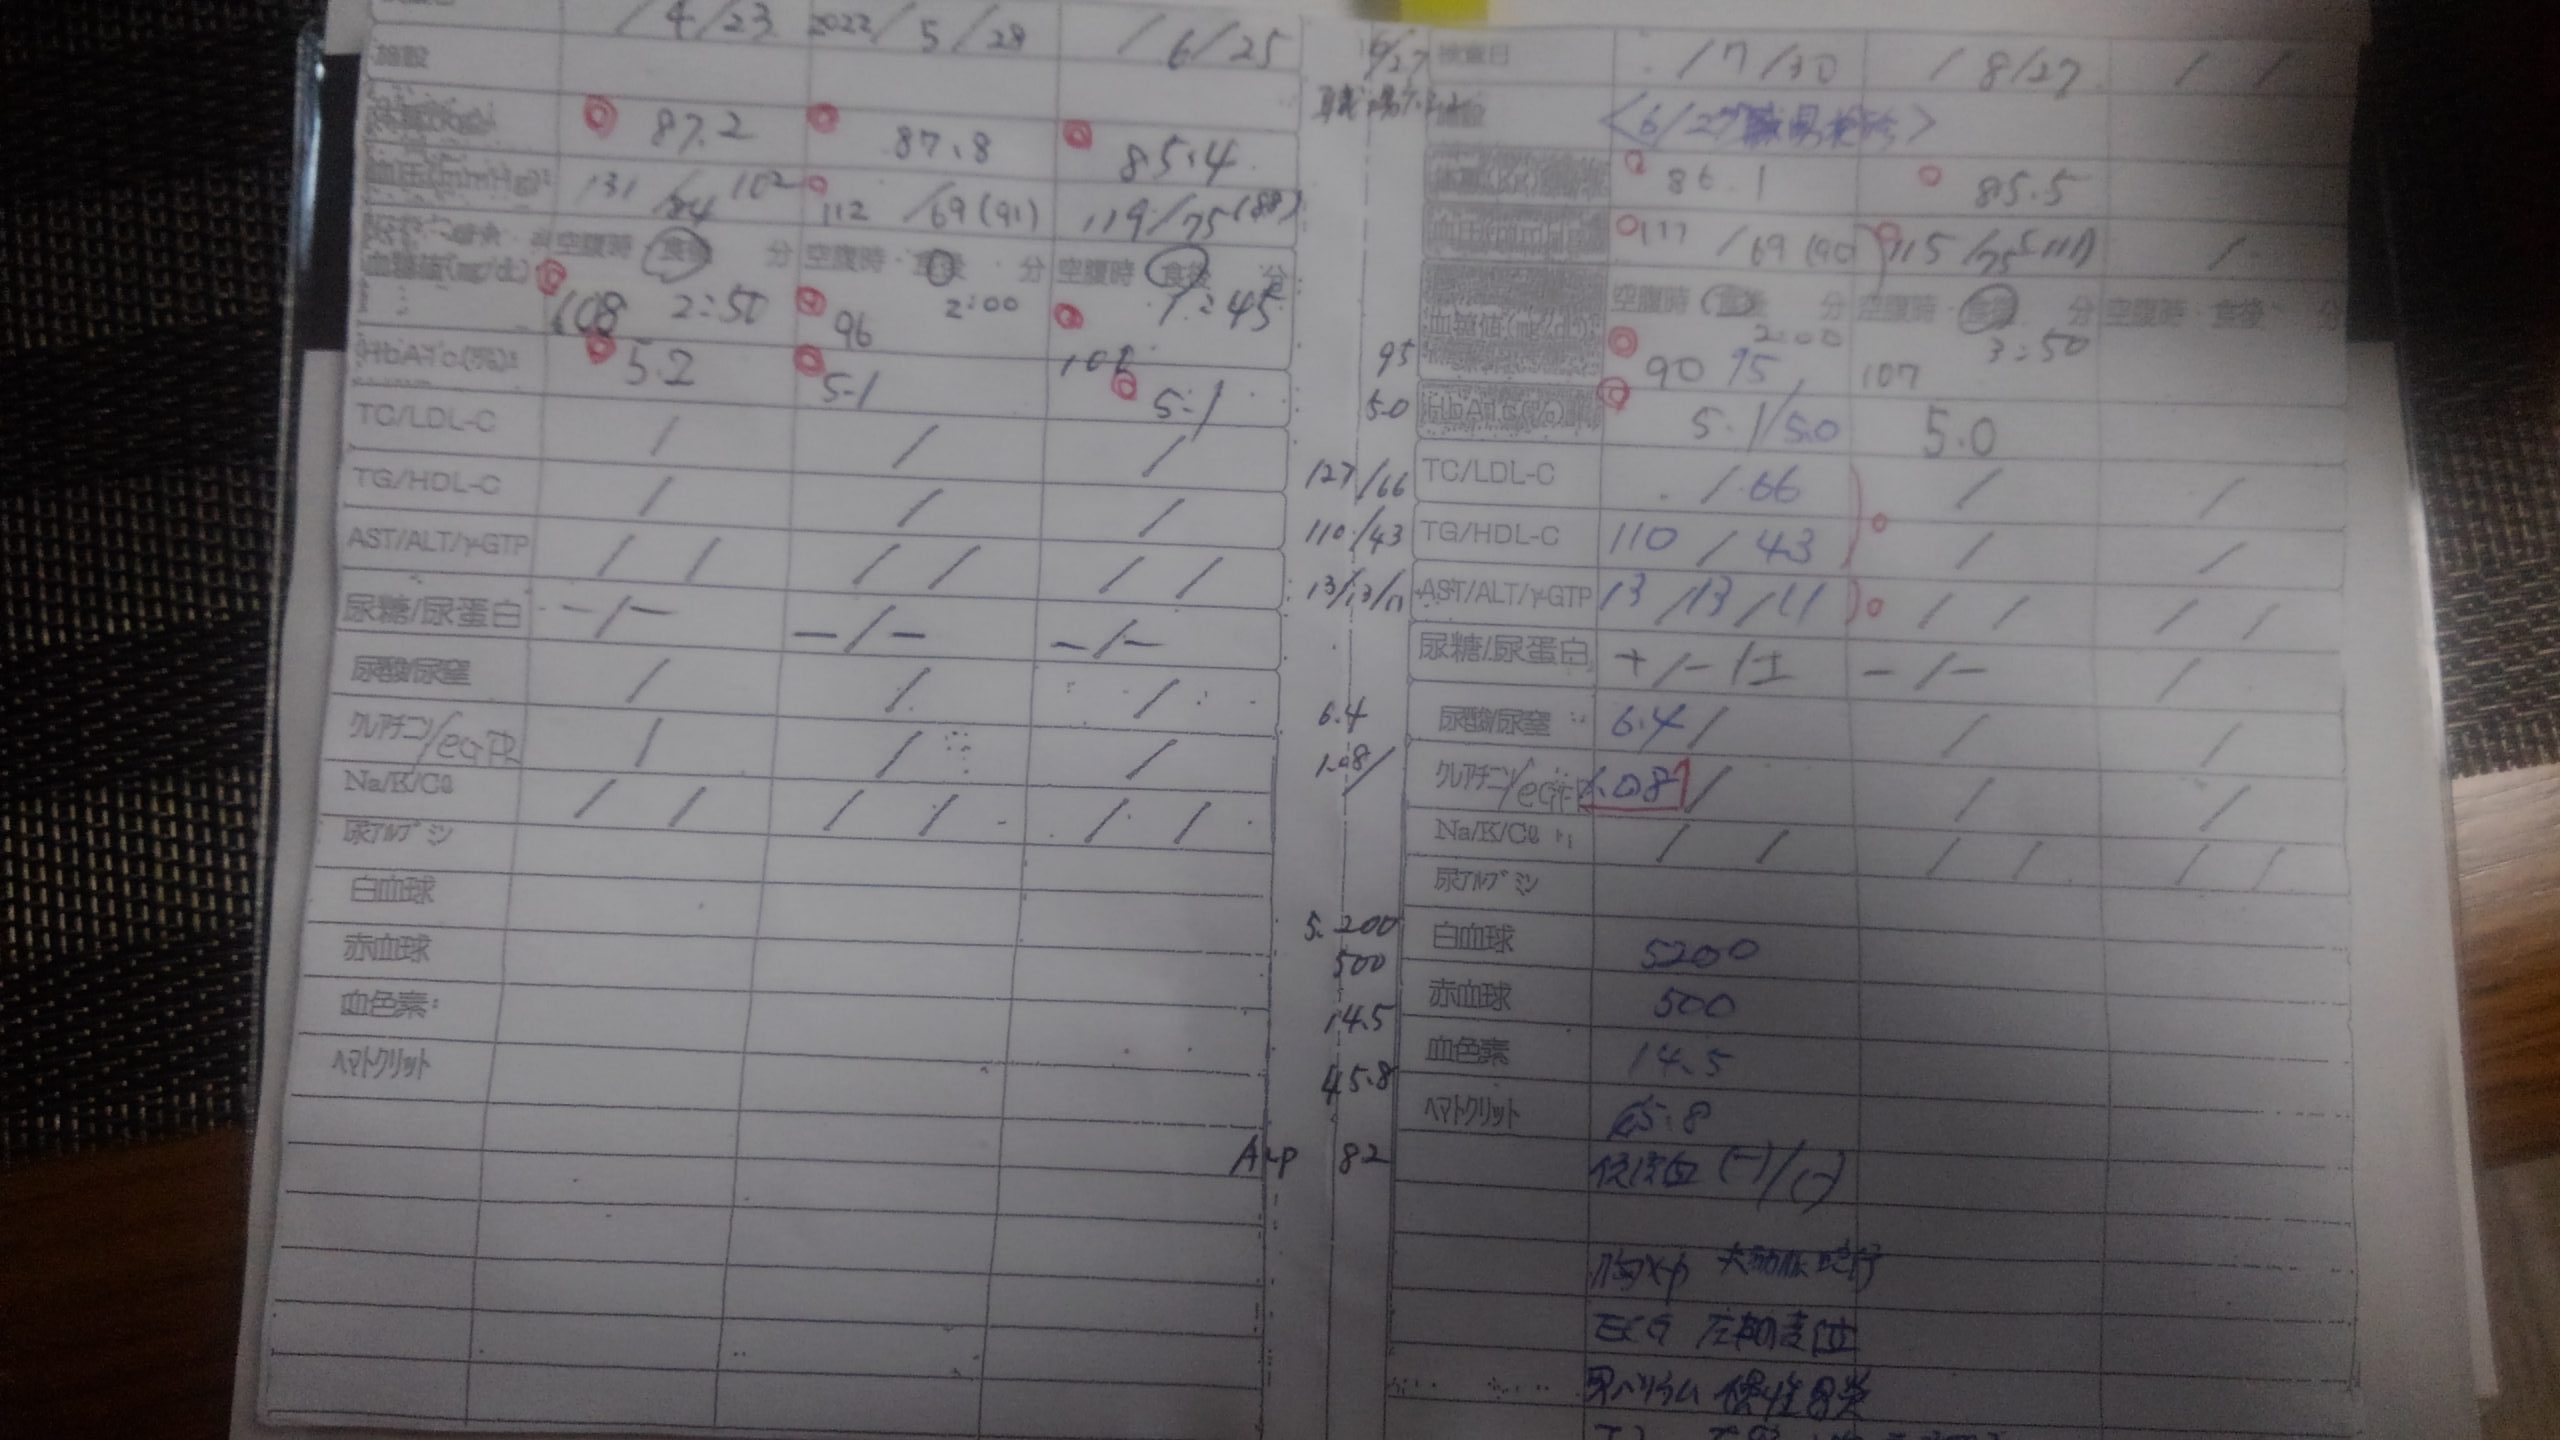 / 4/23 2022/ 5/28 / 6/25
施設
87.2 87.8 85.4
血圧(mmHg) 131/84 102 112/69(91) 119/75(88)
空腹時・食後 分 空腹時・食後 分 空腹時・食後 分
血糖値(mg/dL) 2:50 2:00 1:45
108 96
HbA1c(%) 5.2 5.1 5.1
TC/LDL-C / / /
TG/HDL-C / / /
AST/ALT/γ-GTP / / / / / /
尿糖/尿蛋白 -/- -/- -/-
尿酸/尿窒 / / /
クレアチニン/eGFR / / /
Na/K/Cl / / / / / /
尿アルブミン
白血球
赤血球
血色素
ヘマトクリット
6/27
95
5.0
127/66
110/43
13/13/11
6.4
1.08/
5.200
500
14.5
45.8
ALP 82
検査日 / 7/30 / 8/27 / /
施設 <6/27職員検診>
86.1 85.5
117/69(90) 115/75(111) /
空腹時・食後 分 空腹時・食後 分 空腹時・食後 分
血糖値(mg/dL) 2:00 3:50
90 95 107
HbA1c(%) 5.1/5.0 5.0
TC/LDL-C /66 / /
TG/HDL-C 110/43 / /
AST/ALT/γ-GTP 13/13/11 / / / /
尿糖/尿蛋白 +/-/± -/- /
尿酸/尿窒 6.4/ / /
クレアチニン/eGFR 1.08/ / /
Na/K/Cl / / / / / /
尿アルブミン
白血球 5200
赤血球 500
血色素 14.5
ヘマトクリット 45.8
便潜血 (-)/(-)
胸Xp 大動脈蛇行
ECG 左軸変位
胃バリウム 慢性胃炎